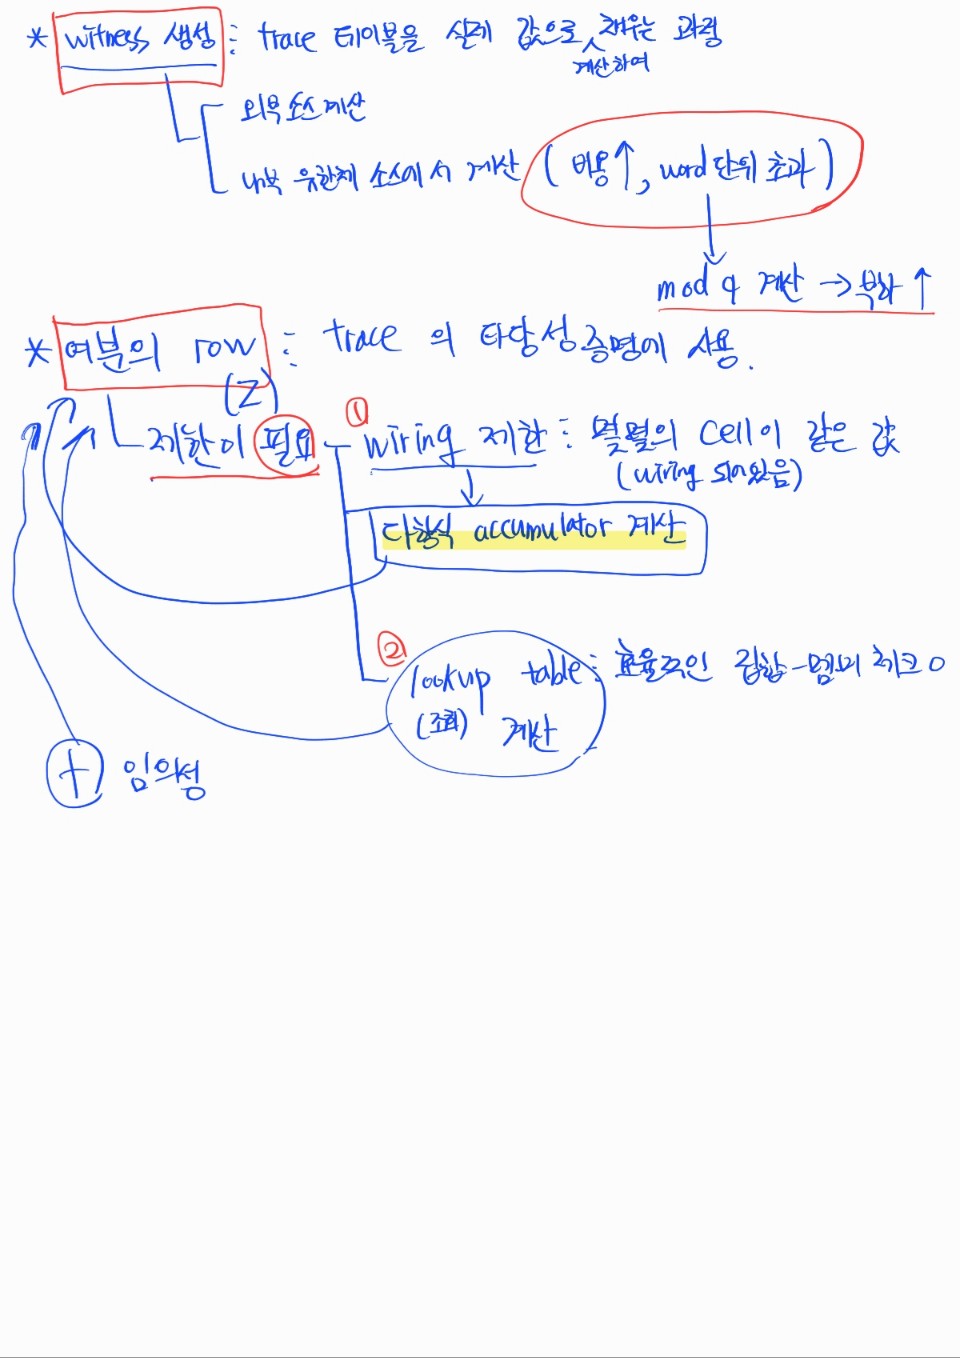 * witness 생성 : trace 테이블을 실제 값으로 계산하여 채우는 과정
외부 소스 계산
내부 유한체 소스에서 계산 (비용↑, word 단위 초과)
mod q 계산 → 부하 ↑
* 여분의 row : trace 의 타당성 증명에 사용.
(Z)
제한이 필요
① wiring 제한 : 몇몇의 cell이 같은 값
(wiring 되어있음)
다항식 accumulator 계산
② lookup table : 효율적인 집합-멤버 체크 o
(조회) 계산
+ 임의성